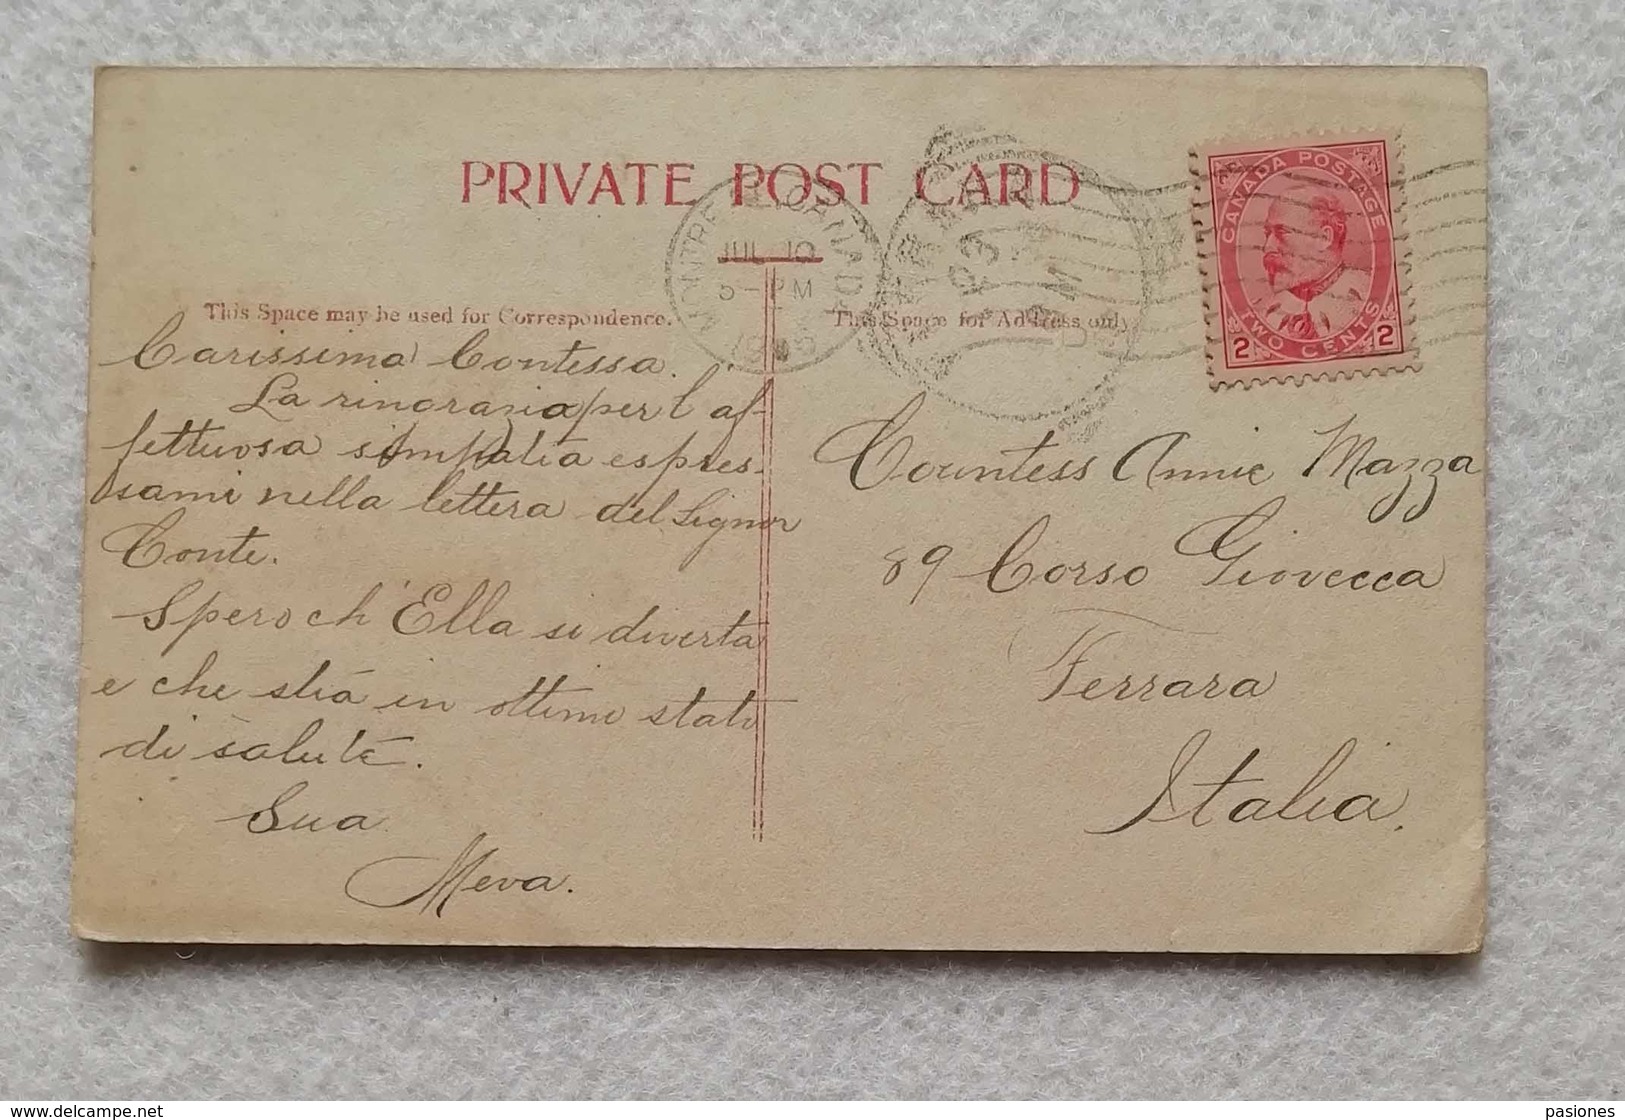 PRIVATE POST CARD
MONTREAL CANADA
JUL 10
5-PM
This Space may be used for Correspondence.
This Space for Address only
CANADA POSTAGE
2 TWO CENTS 2
Carissima Contessa.
La ringrazio per l'af-
fettuosa simpatia espres-
sami nella lettera del Signor
Conte.
Spero ch'Ella si diverta
e che stiá in ottimo stato
di salute.
Sua
Meva.
Countess Annie Mazza
89 Corso Giovecca
Ferrara
Italia.
www.delcampe.net
pasiones